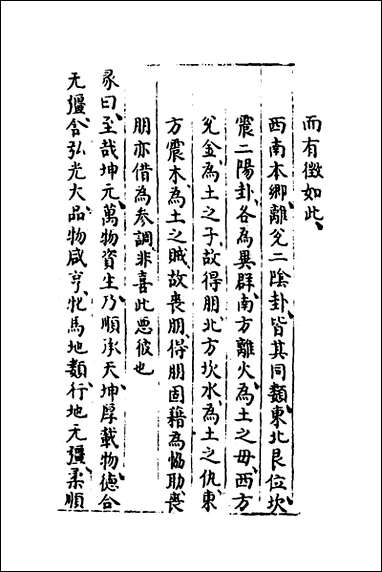 而有徵如此、
西南本鄉、離兌二陰卦、皆其同類、東北艮位、坎
震二陽卦、各為異群、南方離火、為土之母、西方
兌金、為土之子、故得朋、北方坎水、為土之仇、東
方震木、為土之賊、故喪朋、得朋固藉為恊助、喪
朋亦借為參調、非喜此惡彼也
彖曰、至哉坤元、萬物資生、乃順承天、坤厚載物、德合
无疆、含弘光大、品物咸亨、牝馬地類、行地无疆、柔順